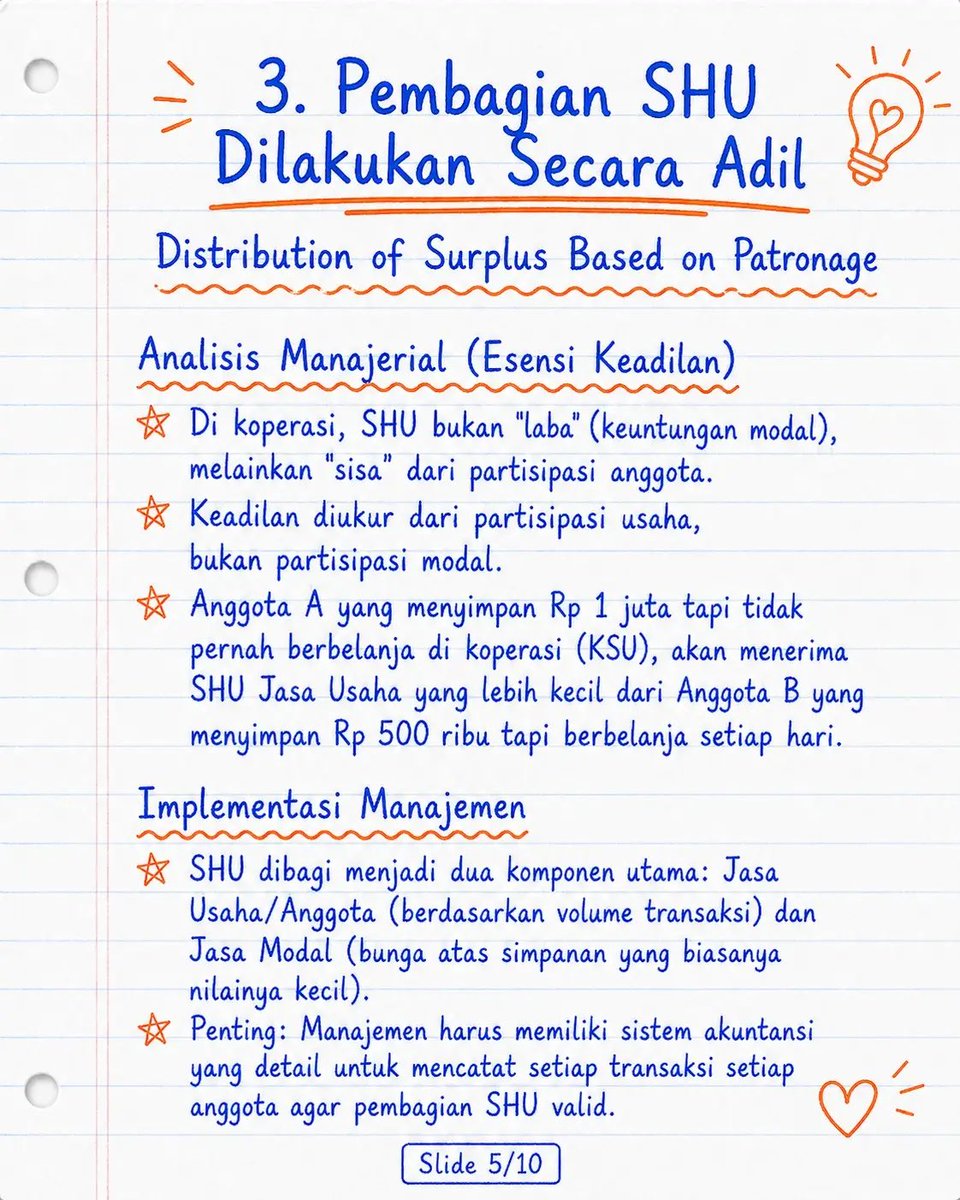 3. Pembagian SHU
Dilakukan Secara Adil
Distribution of Surplus Based on Patronage
Analisis Manajerial (Esensi Keadilan)
Di koperasi, SHU bukan "laba" (keuntungan modal),
melainkan "sisa" dari partisipasi anggota.
Keadilan diukur dari partisipasi usaha,
bukan partisipasi modal.
Anggota A yang menyimpan Rp 1 juta tapi tidak
pernah berbelanja di koperasi (KSU), akan menerima
SHU Jasa Usaha yang lebih kecil dari Anggota B yang
menyimpan Rp 500 ribu tapi berbelanja setiap hari.
Implementasi Manajemen
SHU dibagi menjadi dua komponen utama: Jasa
Usaha/Anggota (berdasarkan volume transaksi) dan
Jasa Modal (bunga atas simpanan yang biasanya
nilainya kecil).
Penting: Manajemen harus memiliki sistem akuntansi
yang detail untuk mencatat setiap transaksi setiap
anggota agar pembagian SHU valid.
Slide 5/10